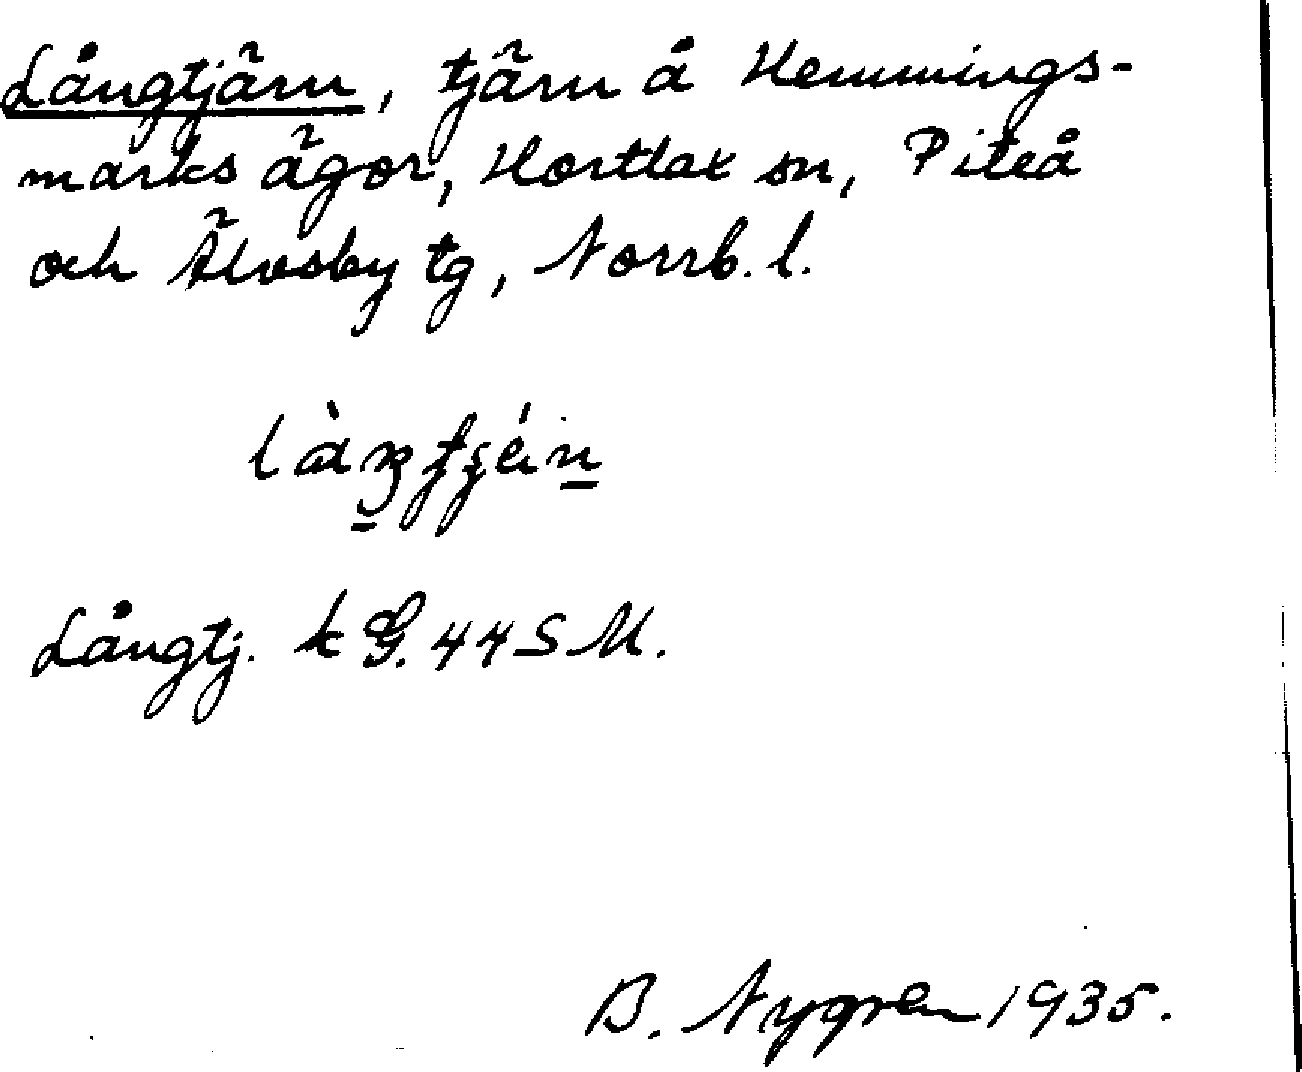 Långtjärn, tjärn å Hemmings-
marks ägor, Hortlax sn, Piteå
och Älvsby tg, Norrb. l.
Långtj. k G. 44 S M.
B. Nygren 1935.